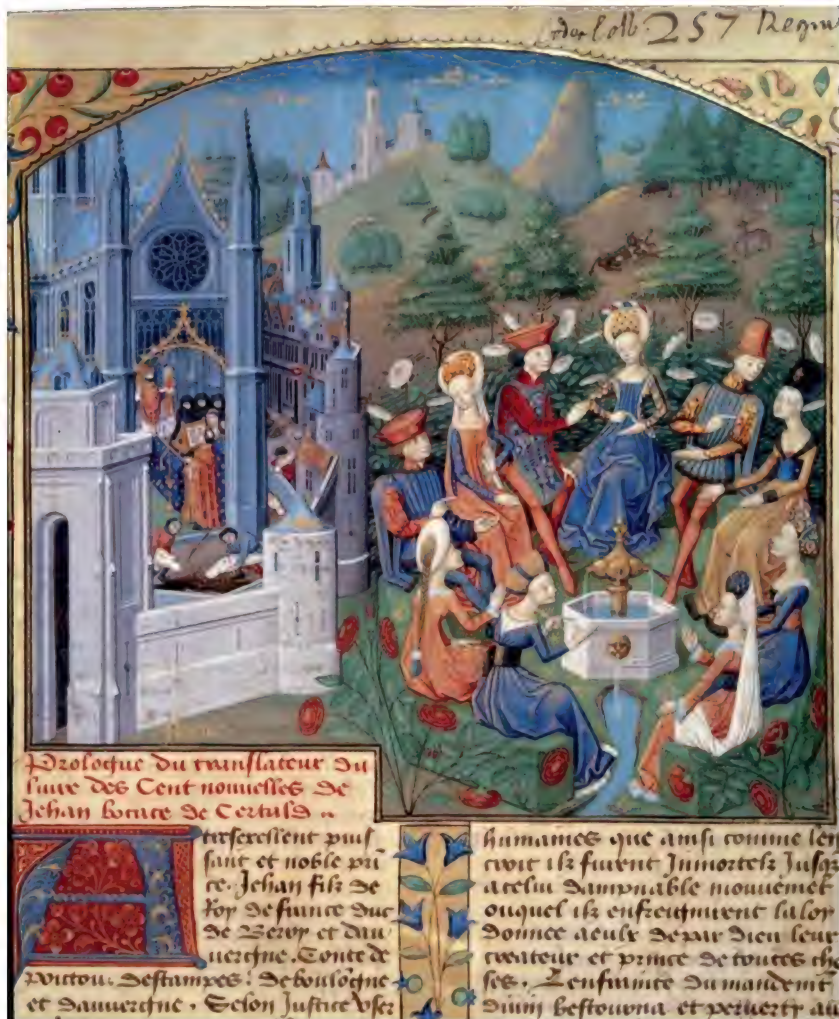 257
Prologue du translateur du
liure des Cent nouuelles de
Jehan bocace de Certald
A tresexellent puis
sant et noble prī
ce. Jehan filz de
Roy de france duc
de Berry et dau
uergne. Conte de
poictou. destampes. de boulogne
et dauuergne. Selon Justice vser
humaines que ainsi comme len
croit ilz furent Jmmortelz Jusq
a celui dampnable mouuemēt
ouquel ilz enfreignirent la loy
donnee a eulx de par dieu leur
createur et prince de toutes cho
ses. Lenfrainte du mandemēt
diuin bestourna et peruerty au